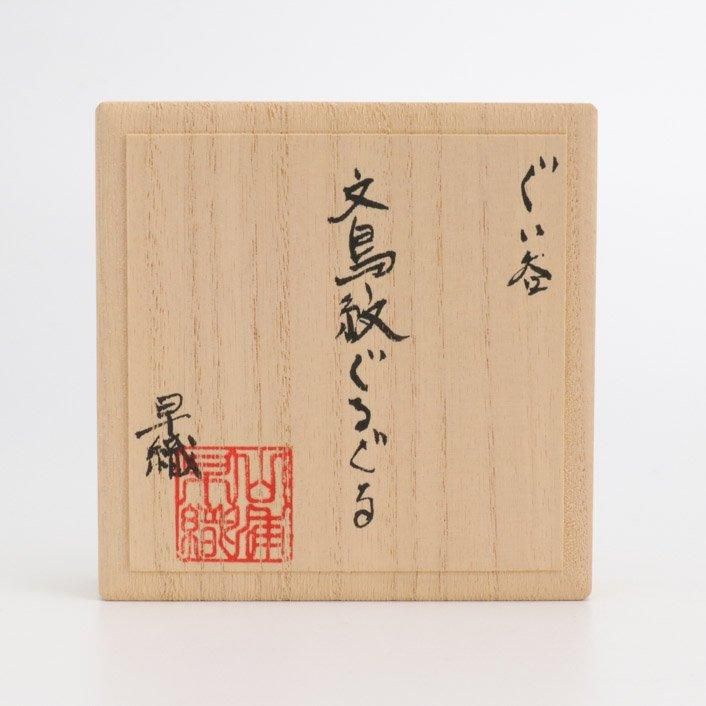 ぐい呑
文鳥紋ぐるぐる
早織